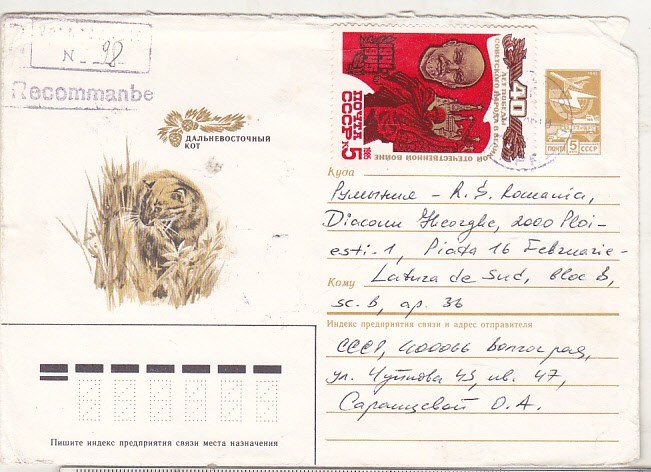 N 98
Recommanbe
ДАЛЬНЕВОСТОЧНЫЙ
КОТ
40
ЛЕТ ПОБЕДЫ
СОВЕТСКОГО НАРОДА В ВЕЛИКОЙ ОТЕЧЕСТВЕННОЙ ВОЙНЕ
1985
ПОЧТА
СССР 5К
ПОЧТА 5 СССР
Куда
Румыния - R. Ş. Romania,
Diaconu Gheorghe, 2000 Ploi-
esti-1, Piața 16 Februarie-
Кому Latura de Sud, bloc B,
sc. B, ap. 36
Индекс предприятия связи и адрес отправителя
СССР, 400066 Волгоград,
ул. Чуйкова 43, кв. 47,
Саранцевой О. А.
Пишите индекс предприятия связи места назначения